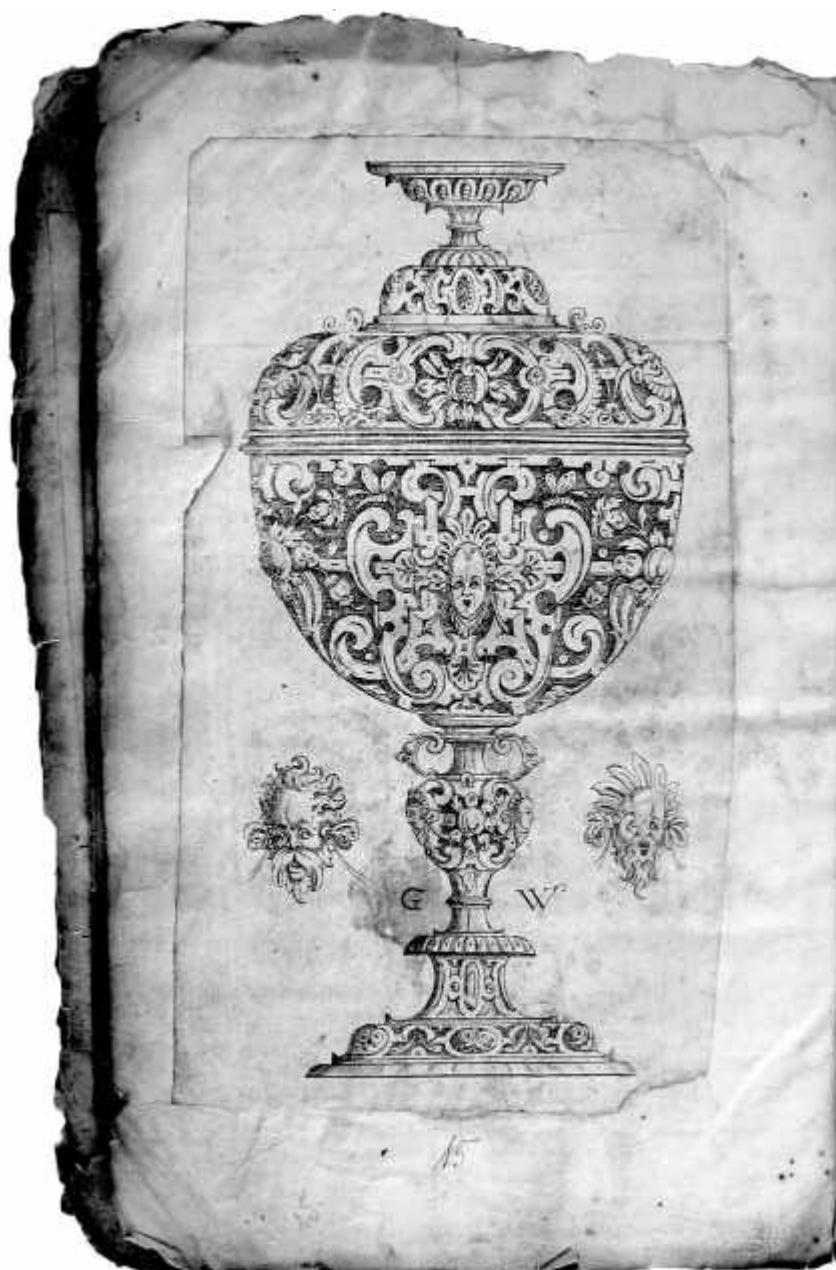 G W
15